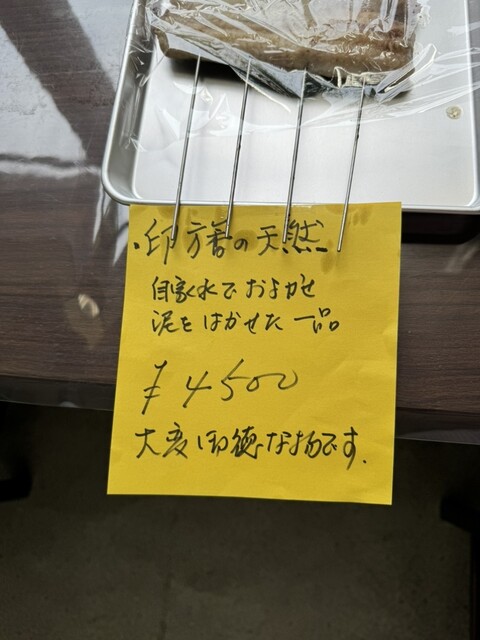 印旛の天然
自家水でおよがせ
泥をはかせた一品
¥4500
大変お得な物です.